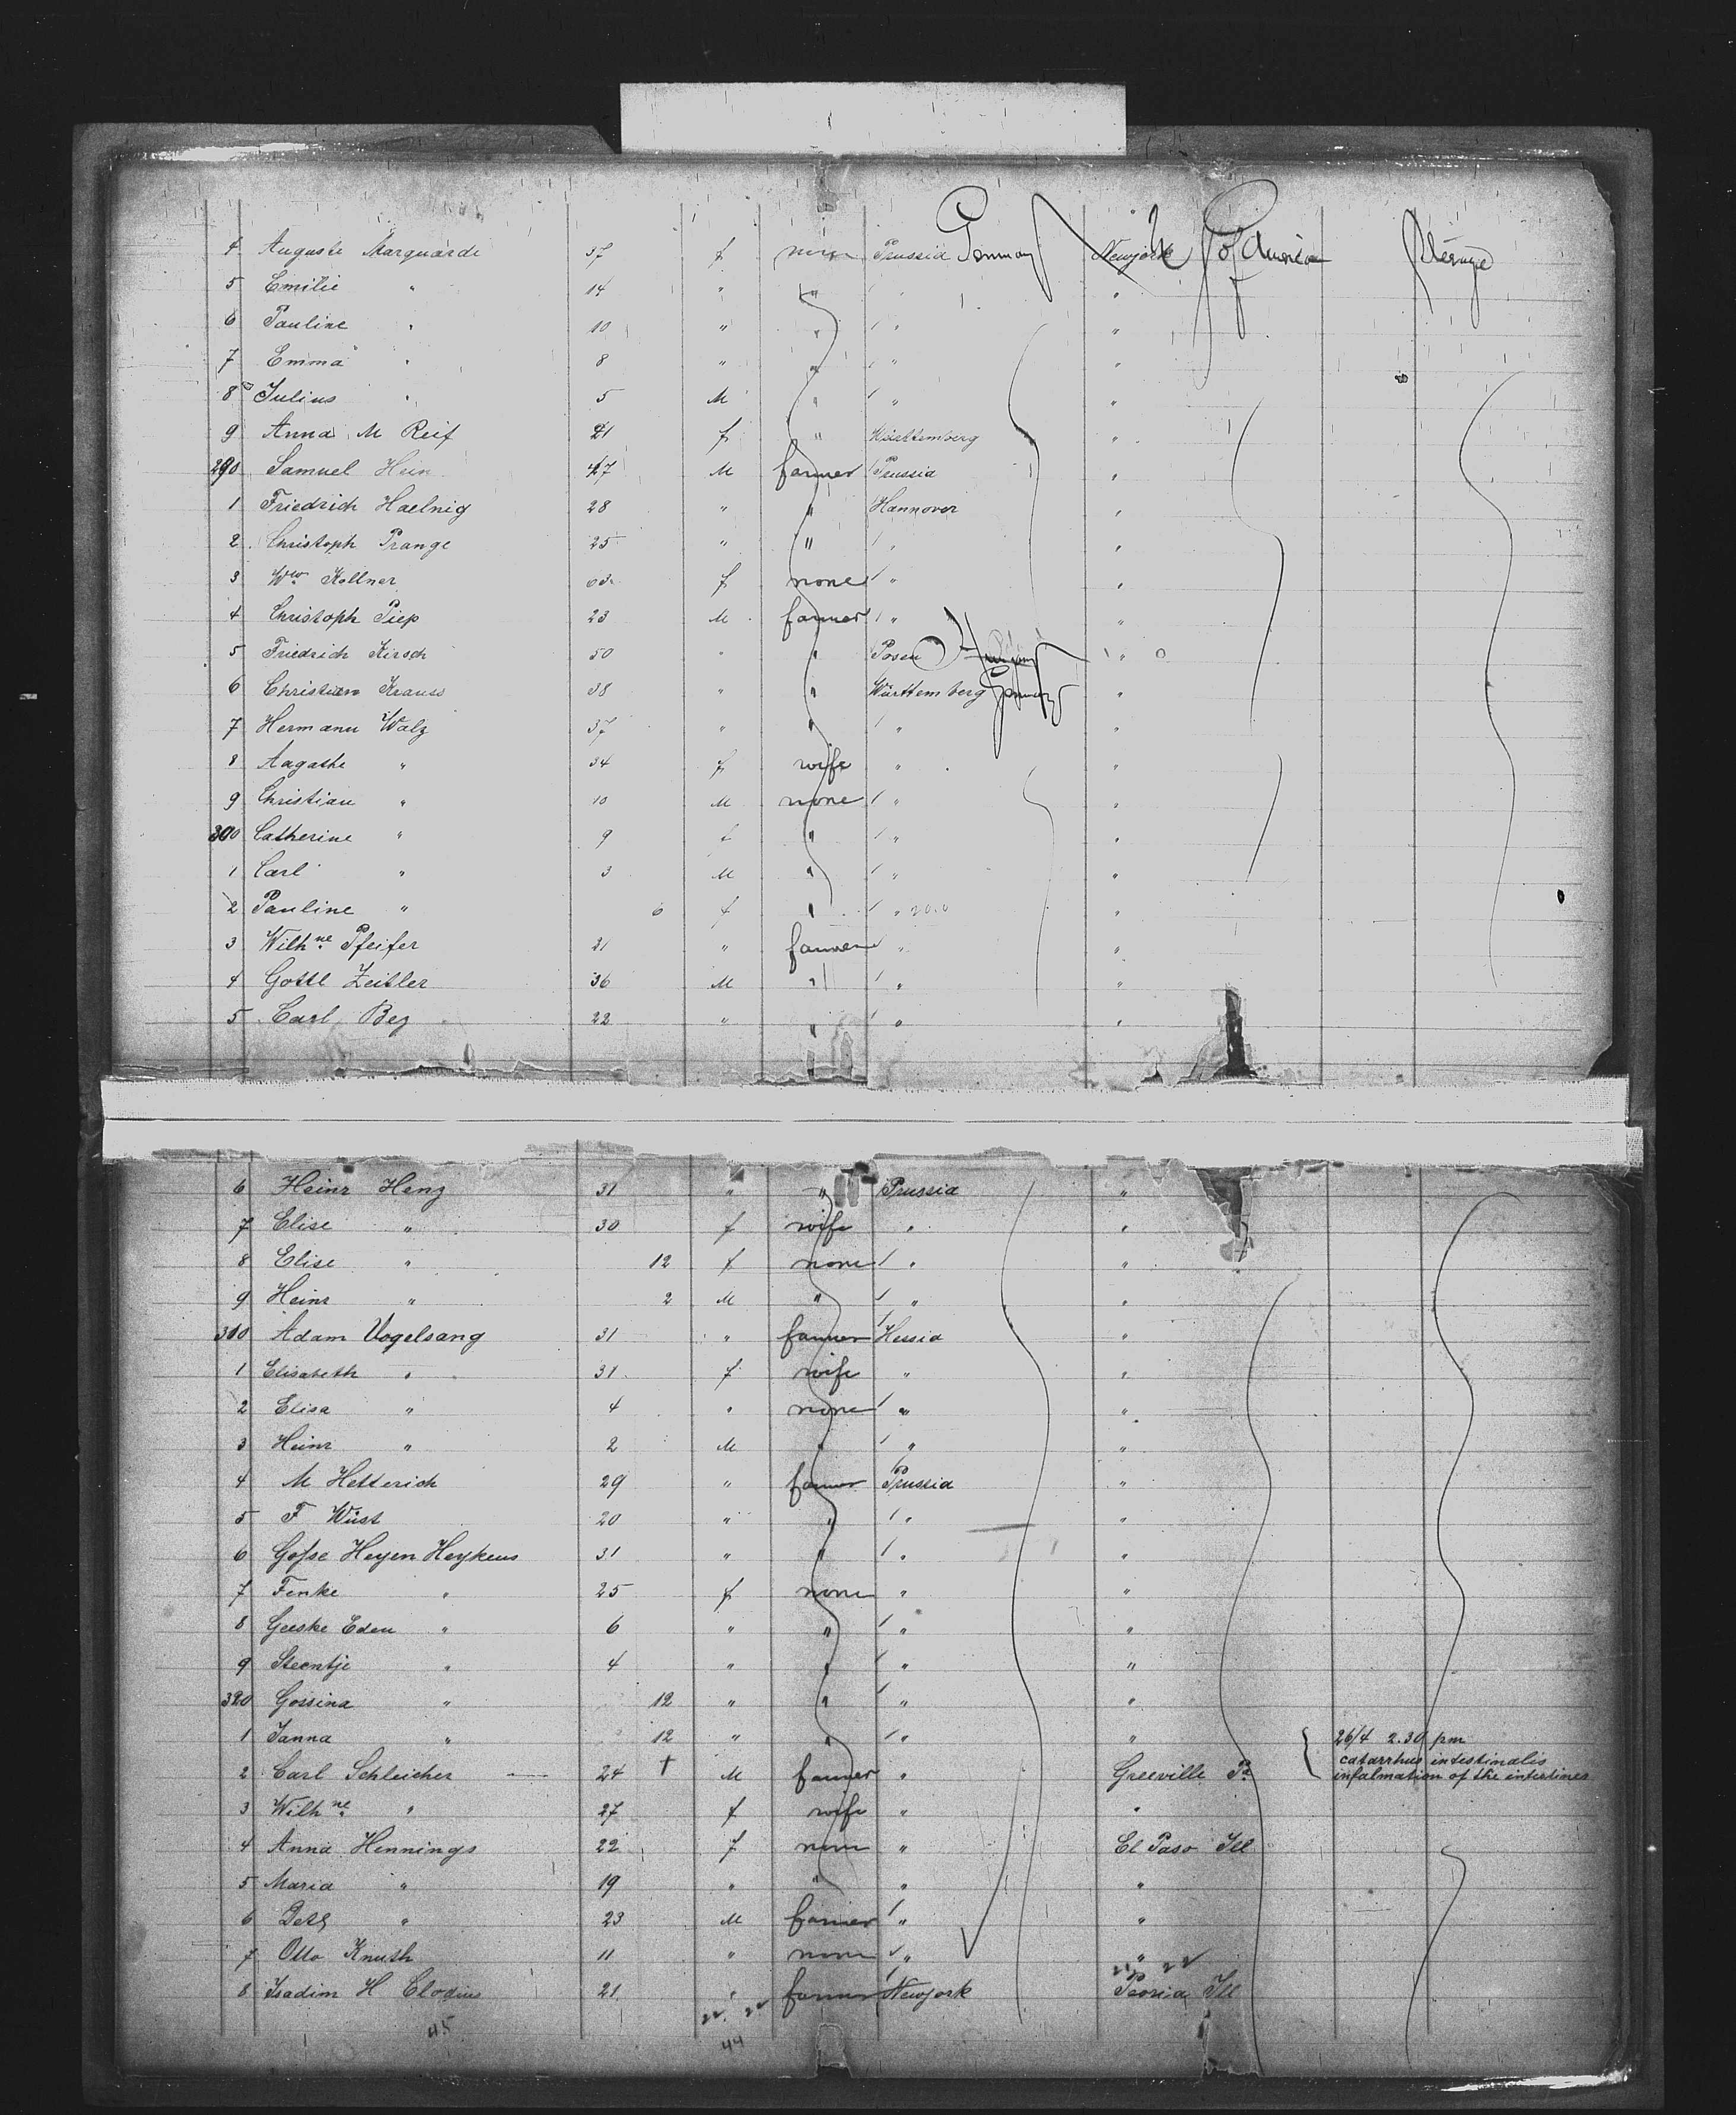 4 Auguste Marquardt 37 f none Prussia Germany Newyork U S of America Steerage
5 Emilie " 14 " " " "
6 Pauline " 10 " " " "
7 Emma " 8 " " " "
8 Julius " 5 M " " "
9 Anna M Reif 21 f " Württemberg "
290 Samuel Hein 47 M farmer Prussia "
1 Friedrich Haelnig 28 " " Hannover "
2 Christoph Prange 25 " " " "
3 Ww Kollner 63 f none " "
4 Christoph Piep 23 M farmer " "
5 Friedrich Kirsch 50 " " Posen "
6 Christian Krauss 38 " " Württemberg Germany "
7 Hermann Walz 37 " " " "
8 Aagathe " 34 f wife " "
9 Christian " 10 M none " "
300 Catherine " 9 f " " "
1 Carl " 3 M " " "
2 Pauline " 6 f " " "
3 Wilhne Pfeifer 21 " farmer " "
4 Gottl Zeitler 36 M " " "
5 Carl Beg 22 " " " "
6 Heinr Henz 31 " " Prussia "
7 Elise " 30 f wife " "
8 Elise " 12 f none " "
9 Heinr " 2 M " " "
310 Adam Vogelsang 31 " farmer Hessia "
1 Elisabeth " 31 f wife " "
2 Elisa " 4 " none " "
3 Heinr " 2 M " " "
4 M Hetterich 29 " farmer Prussia "
5 F Wüst 20 " " " "
6 Gosse Heyen Heykens 31 " " " "
7 Fenke " 25 f none " "
8 Geeske Eden " 6 " " " "
9 Steentje " 4 " " " "
320 Gossina " 12 " " " "
1 Janna " 12 " " " " 26/4 2.30 pm
catarrhus intestinalis
2 Carl Schleicher 24 † M farmer " Greeville Pa infalmation of the intestines
3 Wilhne " 27 f wife " "
4 Anna Hennings 22 f none " El Paso Ill
5 Maria " 19 " " " "
6 Detl " 23 M farmer " "
7 Otto Knuth 11 " none " "
8 Joadim H Clodius 21 " farmer Newyork Peoria Ill
45 44